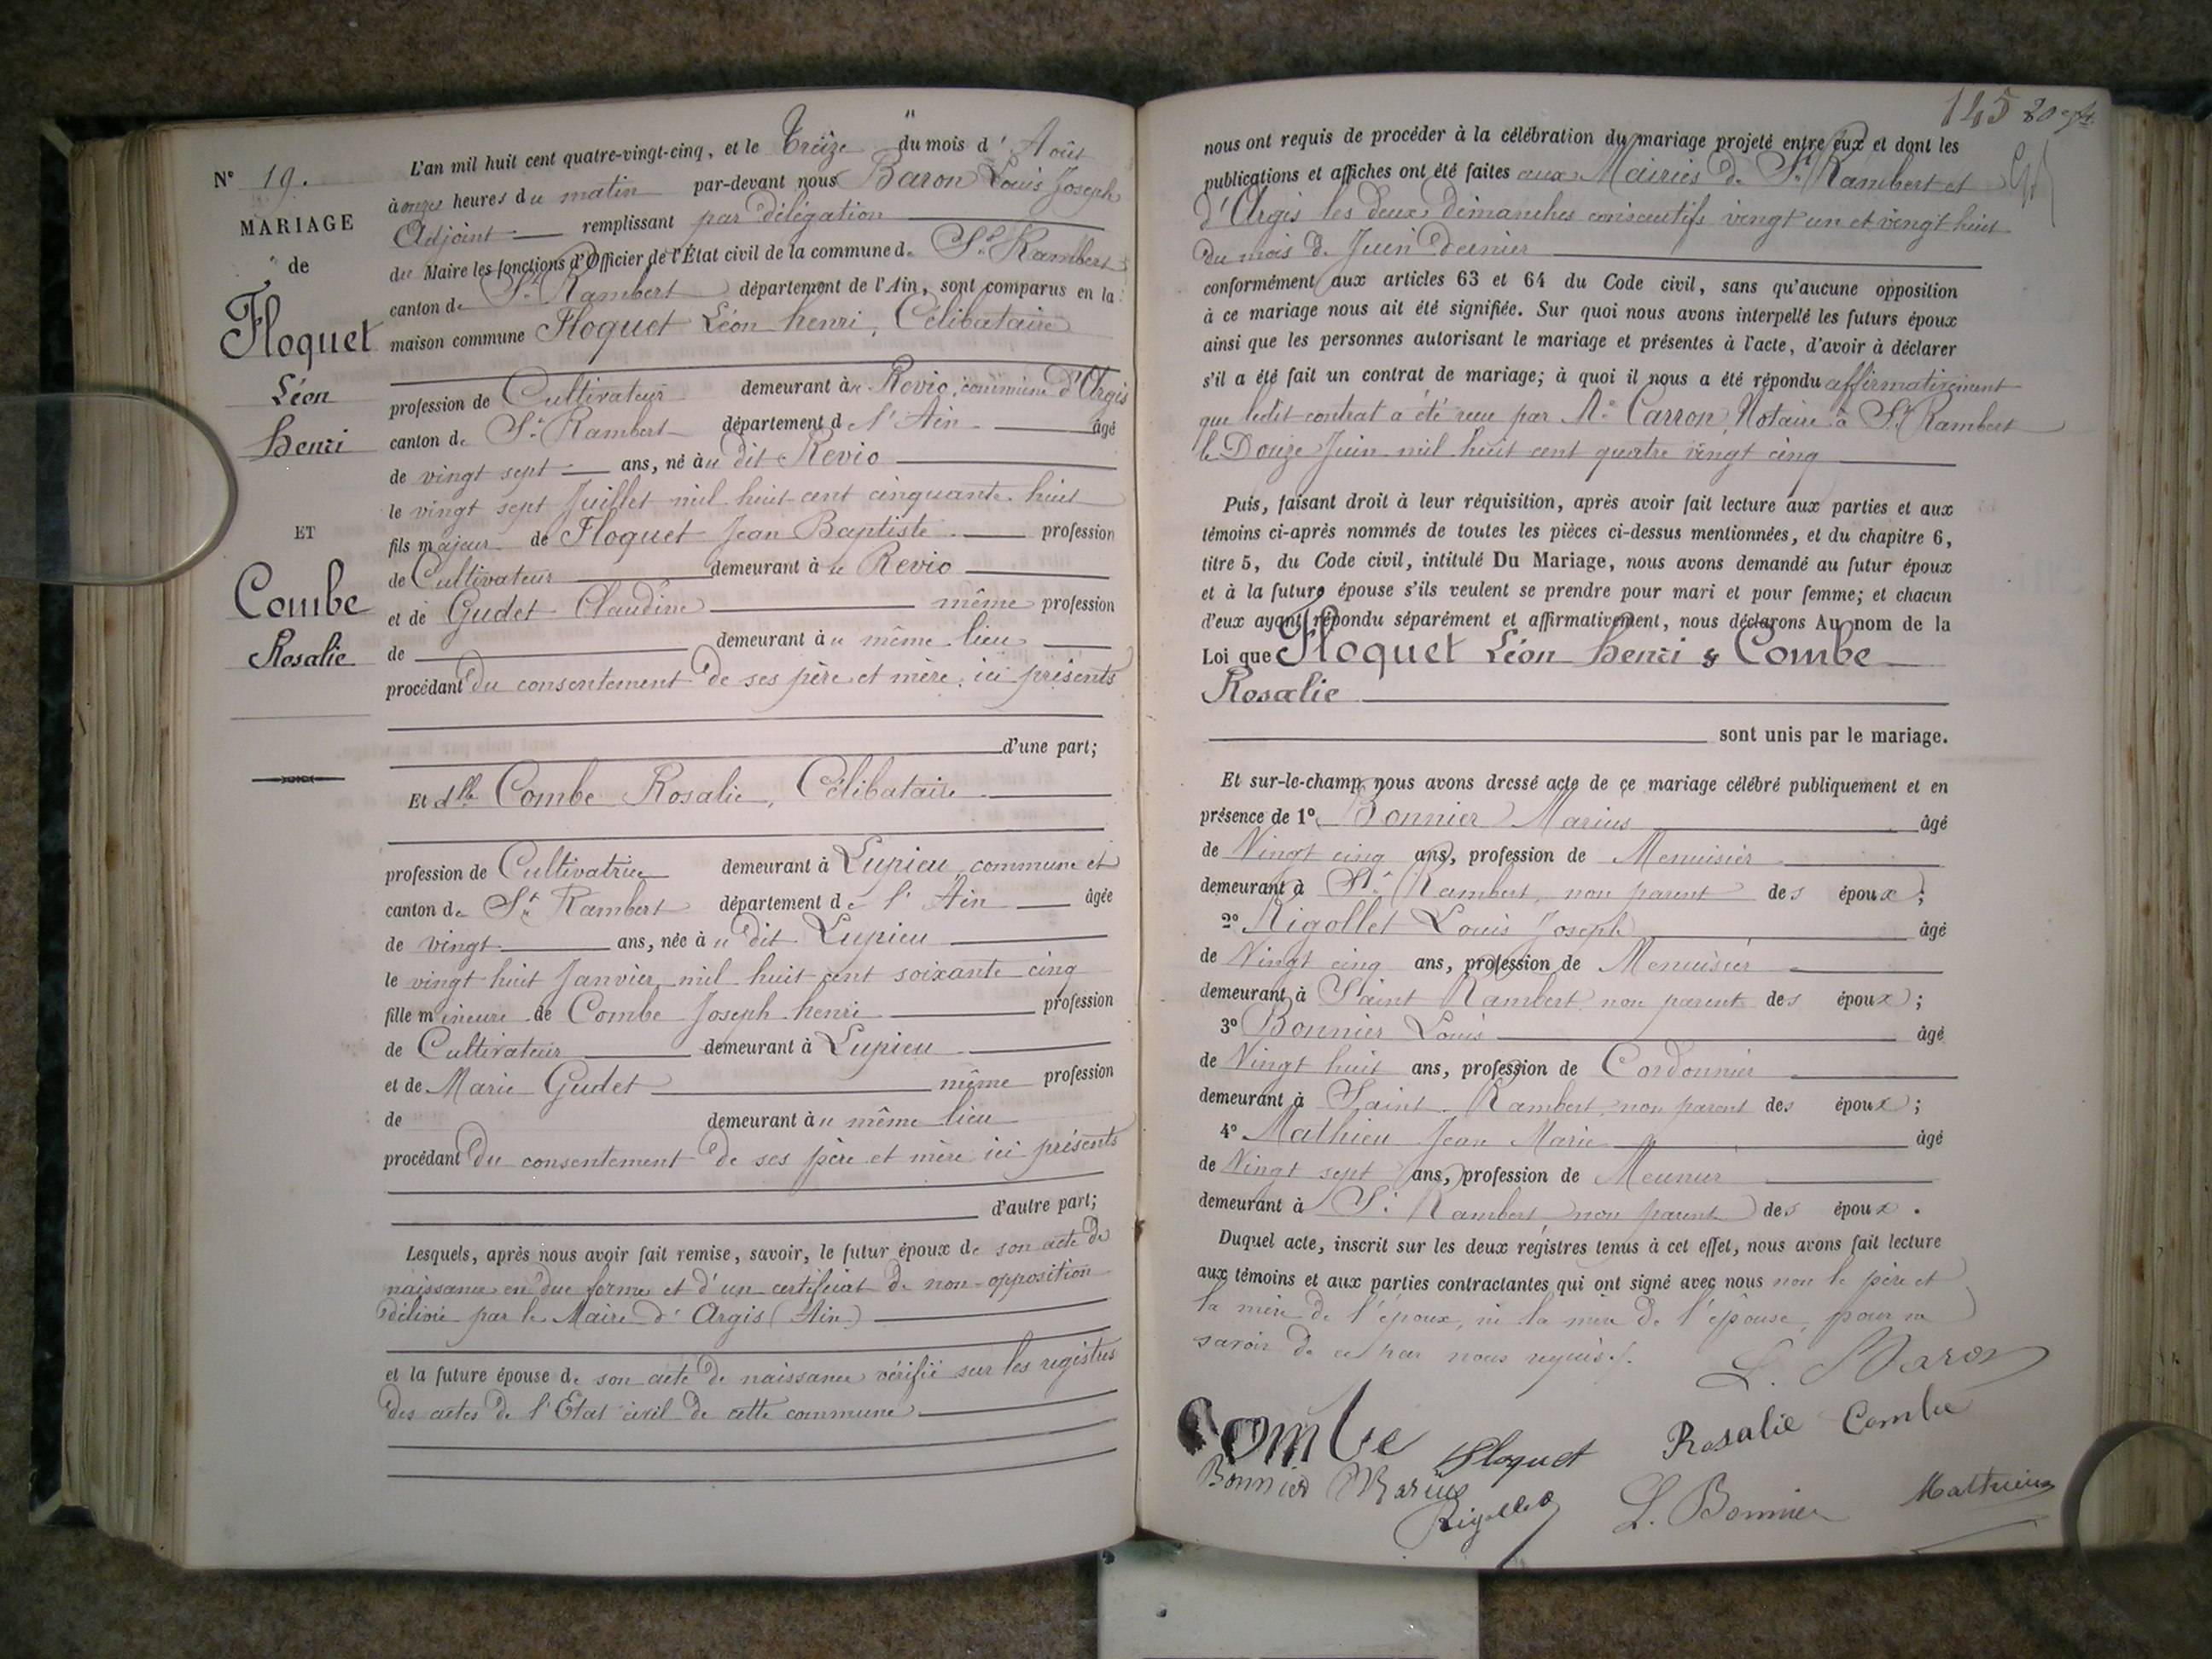 N° 19.
MARIAGE
de
Floquet
Léon
henri
ET
Combe
Rosalie
L'an mil huit cent quatre-vingt-cinq, et le Treize du mois d'Août
à onze heures du matin par-devant nous Baron Louis Joseph
Adjoint remplissant par délégation
du Maire les fonctions d'Officier de l'État civil de la commune de St Rambert
canton de St Rambert département de l'Ain, sont comparus en la
maison commune Floquet Léon henri, Célibataire
profession de Cultivateur demeurant à Revio, commune d'Argis
canton de St Rambert département de l'Ain âgé
de vingt sept ans, né au dit Revio
le vingt sept Juillet mil huit cent cinquante huit
fils majeur de Floquet Jean Baptiste profession
de Cultivateur demeurant à Revio
et de Gudet Claudine même profession
de demeurant au même lieu
procédant du consentement de ses père et mère ici présents
d'une part;
Et dlle Combe Rosalie, Célibataire
profession de Cultivatrice demeurant à Lupieu commune et
canton de St Rambert département de l'Ain âgée
de vingt ans, née au dit Lupieu
le vingt huit Janvier mil huit cent soixante cinq
fille mineure de Combe Joseph henri profession
de Cultivateur demeurant à Lupieu
et de Marie Gudet même profession
de demeurant au même lieu
procédant du consentement de ses père et mère ici présents
d'autre part;
Lesquels, après nous avoir fait remise, savoir, le futur époux de son acte de
naissance en due forme et d'un certificat de non-opposition
délivré par le Maire d'Argis (Ain)
et la future épouse de son acte de naissance vérifié sur les registres
des actes de l'Etat civil de cette commune
145
nous ont requis de procéder à la célébration du mariage projeté entre eux et dont les
publications et affiches ont été faites aux Mairies de St Rambert et
d'Argis les deux dimanches consécutifs vingt un et vingt huit
du mois de Juin dernier
conformément aux articles 63 et 64 du Code civil, sans qu'aucune opposition
à ce mariage nous ait été signifiée. Sur quoi nous avons interpellé les futurs époux
ainsi que les personnes autorisant le mariage et présentes à l'acte, d'avoir à déclarer
s'il a été fait un contrat de mariage; à quoi il nous a été répondu affirmativement
que ledit contrat a été reçu par Me Carron, Notaire à St Rambert
le Douze Juin mil huit cent quatre vingt cinq
Puis, faisant droit à leur réquisition, après avoir fait lecture aux parties et aux
témoins ci-après nommés de toutes les pièces ci-dessus mentionnées, et du chapitre 6,
titre 5, du Code civil, intitulé Du Mariage, nous avons demandé au futur époux
et à la future épouse s'ils veulent se prendre pour mari et pour femme; et chacun
d'eux ayant répondu séparément et affirmativement, nous déclarons Au nom de la
Loi que Floquet Léon henri & Combe
Rosalie
sont unis par le mariage.
Et sur-le-champ nous avons dressé acte de ce mariage célébré publiquement et en
présence de 1° Bonnier Marius âgé
de Vingt cinq ans, profession de Menuisier
demeurant à St Rambert, non parent des époux;
2° Rigollet Louis Joseph âgé
de Vingt cinq ans, profession de Menuisier
demeurant à Saint Rambert non parent des époux;
3° Bonnier Louis âgé
de Vingt huit ans, profession de Cordonnier
demeurant à Saint Rambert, non parent des époux;
4° Mathieu Jean Marie âgé
de Vingt sept ans, profession de Meunier
demeurant à St Rambert non parent des époux.
Duquel acte, inscrit sur les deux régistres tenus à cet effet, nous avons fait lecture
aux témoins et aux parties contractantes qui ont signé avec nous non le père et
la mère de l'époux, ni la mère de l'épouse, pour ne
savoir de ce par nous requis.
L. Baron
Combe Floquet Rosalie Combe
Bonnier Marius Rigollet L. Bonnier Mathieu